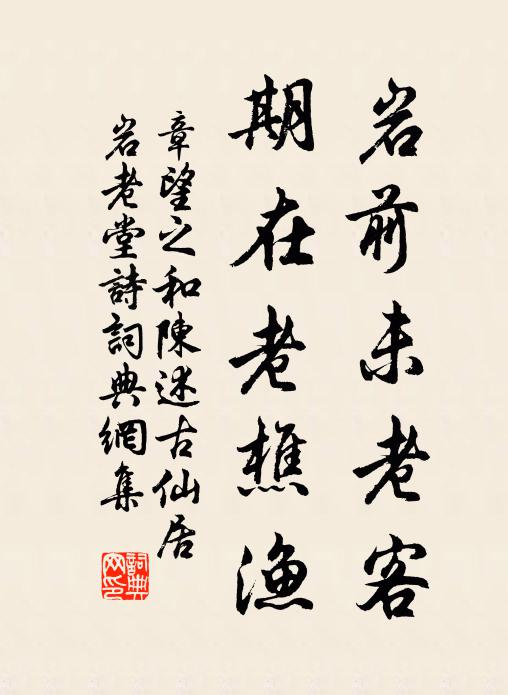 岩前未老客
期在老樵漁
章望之和陳述古仙居
岩老堂詩詞典網集
詞典
网印